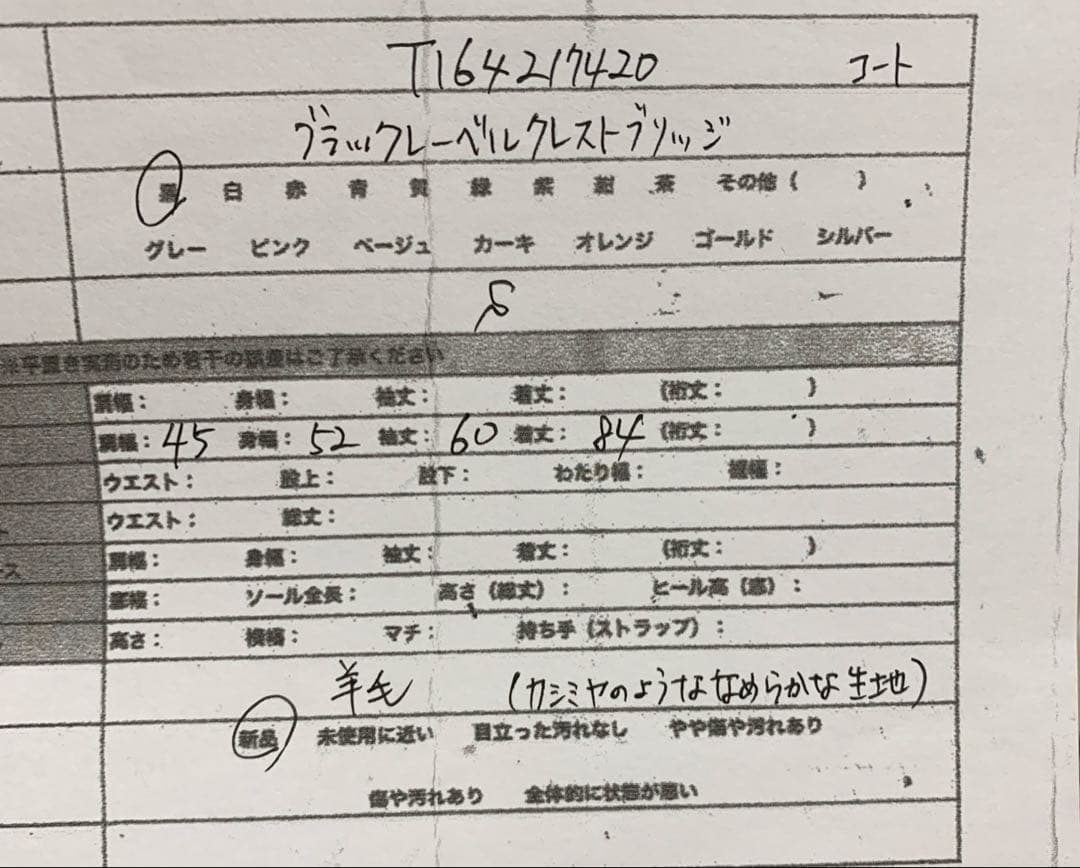 T164217420 コート
ブラックレーベルクレストブリッジ
黒 白 赤 青 黄 緑 紫 紺 茶 その他 ( )
グレー ピンク ベージュ カーキ オレンジ ゴールド シルバー
※平置き実施のため若干の誤差はご了承ください
肩幅： 身幅： 袖丈： 着丈： (裄丈： )
肩幅：45 身幅：52 袖丈：60 着丈：84 (裄丈： )
ウエスト： 股上： 股下： わたり幅： 裾幅：
ウエスト： 総丈：
ース 肩幅： 身幅： 袖丈： 着丈： (裄丈： )
ソール全長： 高さ（総丈）： ヒール高（底）：
高さ： 横幅： マチ： 持ち手（ストラップ）：
羊毛 (カシミヤのようななめらかな生地)
新品 未使用に近い 目立った汚れなし やや傷や汚れあり
傷や汚れあり 全体的に状態が悪い